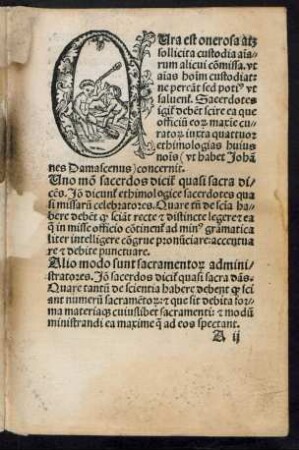 Ura est onerosa atꝫ
sollicita custodia aīa
rum alicui cōmissa. vt
aīas hoīm custodiat:
ne pereāt sed potiꝰ vt
saluent᷑. Sacerdotes
igit᷑ debēt scire ea que
officiū eoꝝ maxīe cu
ratoꝝ iuxta quattuor
ethimologias huius
nōis (vt habet Johā
nes Damascenus) concernit.
Uno mō sacerdos dicit᷑ quasi sacra di
cēs. Jō dicunt᷑ ethimologice sacerdotes qua
si missarū celebratores. Quare tm̄ de sciā ha
bere debēt ꝙ sciāt recte et distincte legere: et ea
q̄ in misse officio cōtinent᷑ ad minꝰ gramatica
liter intelligere cōgrue pronūciare: accentua
re et debite punctuare.
Alio modo sunt sacramentoꝝ admini
stratores. Jō sacerdos dicit᷑ quasi sacra dās.
Quare tantū de scientia habere debent ꝙ sci
ant numerū sacramētoꝝ: et que sit debita for
ma materiaqꝫ cuiuslibet sacramenti: et modū
ministrandi ea maxime q̄ ad eos spectant.
A ij